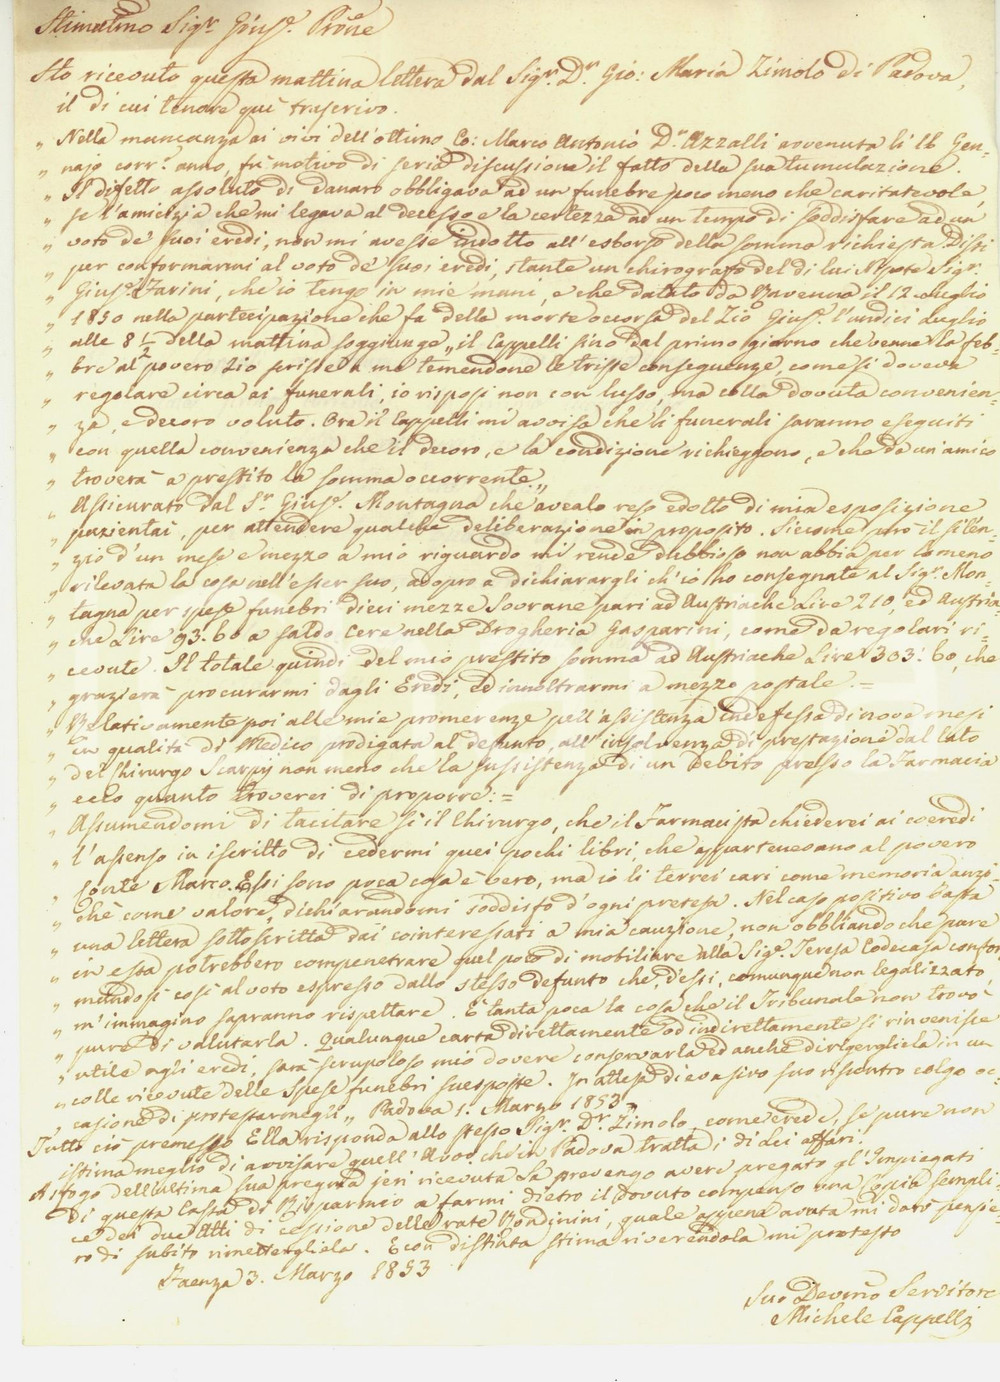 Stimatmo Sigr Giuse. Prone
Ho ricevuto questa mattina lettera dal Sigr. Dr. Gio: Maria Zimolo di Padova,
il di cui tenore quì trascrivo.
„ Nella mancanza ai vivi dell'ottimo Co: Marco Antonio Dr Azzalli avvenuta li 16 Gen-
„ najo corr.e anno, fu motivo di seria discussione il fatto della sua tumulazione.
„ Il difetto assoluto di danaro obbligava ad un funebre poco meno che caritatevole,
„ se l'amicizia che mi legava al decesso e la certezza ad un tempo di soddisfare ad un
„ voto de' suoi eredi, non mi avesse indotto all'esborso della somma richiesta. Dissi
„ per conformarmi al voto de' suoi eredi, stante un chirografo del di lui Nipote Sigr.
„ Giuse. Farini, che io tengo in mie mani, e che datato da Ravenna il 12. Luglio
„ 1850 nella partecipazione che fa della morte occorsa del Zio Giuse. l'undici Luglio
„ alle 8 1/2 della mattina soggiunge „ il Cappelli sino dal primo giorno che venne la feb-
„ bre al povero Zio scrisse a me temendone le triste conseguenze, come si doveva
„ regolare circa ai funerali, io risposi non con lusso, ma colla dovuta convenien-
„ za, e decoro voluto. Ora il Cappelli mi avvisa che li funerali saranno eseguiti
„ con quella convenienza che il decoro, e la condizione richieggono, e che da un amico
„ troverà a prestito la somma occorrente „
„ Assicurato dal Sr Giuse. Montagna che avealo reso edotto di mia esposizione
„ pazientai per attendere qualche deliberazione in proposito. Siccome però il silen-
„ zio d'un mese e mezzo a mio riguardo mi rende dubbioso non abbia per lo meno
„ rilevata la cosa nell'esser suo, adopro a dichiarargli ch'io ho consegnate al Sigr. Mon-
„ tagna per spese funebri dieci mezze Sovrane pari ad Austriache Lire 210, ed Austria-
„ che Lire 93.60 a saldo Cere nella Drogheria Gasparini, come da regolari ri-
„ cevute. Il totale quindi del mio prestito somma ad Austriache Lire 303:60, che
„ grazierà procurarmi dagli Eredi, ed innoltrarmi a mezzo postale. =
„ Relativamente poi alle mie promerenze pell'assistenza indefessa di nove mesi
„ in qualità di Medico prodigata al defunto, all'insolvenza di prestazione dal lato
„ del Chirurgo Scarpij non meno che la sussistenza di un debito presso la Farmacia
„ ecco quanto troverei di proporre: =
„ Assumendomi di tacitare sì il Chirurgo, che il Farmacista chiederei ai coeredi
„ l'assenso in iscritto di cedermi quei pochi libri, che appartenevano al povero
„ Conte Marco. Essi sono poca cosa è vero, ma io li terrei cari come memoria anzi-
„ chè come valore, dichiarandomi soddisfo d'ogni pretesa. Nel caso positivo basta
„ una lettera sottoscritta dai cointeressati a mia cauzione, non obbliando che pare
„ in essa potrebbero compenetrare quel poco di mobiliare alla Siga. Teresa Codecasa confor-
„ mandosi così al voto espresso dallo stesso defunto che, d'essi, comunque non legalizzato
„ m'immagino sapranno rispettare. È tanta poca la cosa che il Tribunale non trovò
„ pure di valutarla. Qualunque carta direttamente od indirettamente si rinvenisse
„ utile agli eredi, sarà scrupoloso mio dovere conservarla ed anche dirigergliela in un
„ colle ricevute delle Spese funebri suesposte. In attesa di evasivo suo riscontro colgo oc-
„ casione di protestarmegli „ Padova 1. Marzo 1853„
Tutto ciò premesso Ella risponda allo stesso Sigr. Dr. Zimolo, come erede, se pure non
istima meglio di avvisare quell'Avvo. che in Padova tratta i di Lei affari.
A sfogo dell'ultima sua pregma jeri ricevuta La prevengo avere pregato gl'Impiegati
di questa Cassa di Risparmio a farmi dietro il dovuto compenso una Copia sempli-
ce dei due Atti di cessione delle rate Bondinini, quale appena avuta mi darò pensie-
ro di subito rimettergliela. E con distinta stima riverendola mi protesto
Faenza 3. Marzo 1853
Suo Devmo Servitore
Michele Cappelli